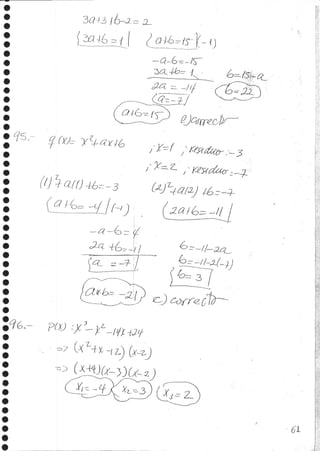 3a+3+b-2=2
3a+b=1 (a+b=15)(-1)
-a-b=-15
3a+b=1 b=15-a
2a=-14 b=22
a=-7
a+b=15 e)correcto
95.- q(x)= x²+ax+b ; x=1 ; residuo:-3
; x=2 ; residuo:-7
(1)²+a(1)+b=-3 (2)²+a(2)+b=-7
(a+b=-4)(-1) 2a+b=-11
-a-b=4
2a+b=-11 b=-11-2a
a=-7 b=-11-2(-7)
b=3
axb=-21 c) correcto
96.- P(x): x³-x²-14x+24
=> (x²+x-12)(x-2)
=> (x+4)(x-3)(x-2)
x₁=-4 x₂=3 x₃=2
61